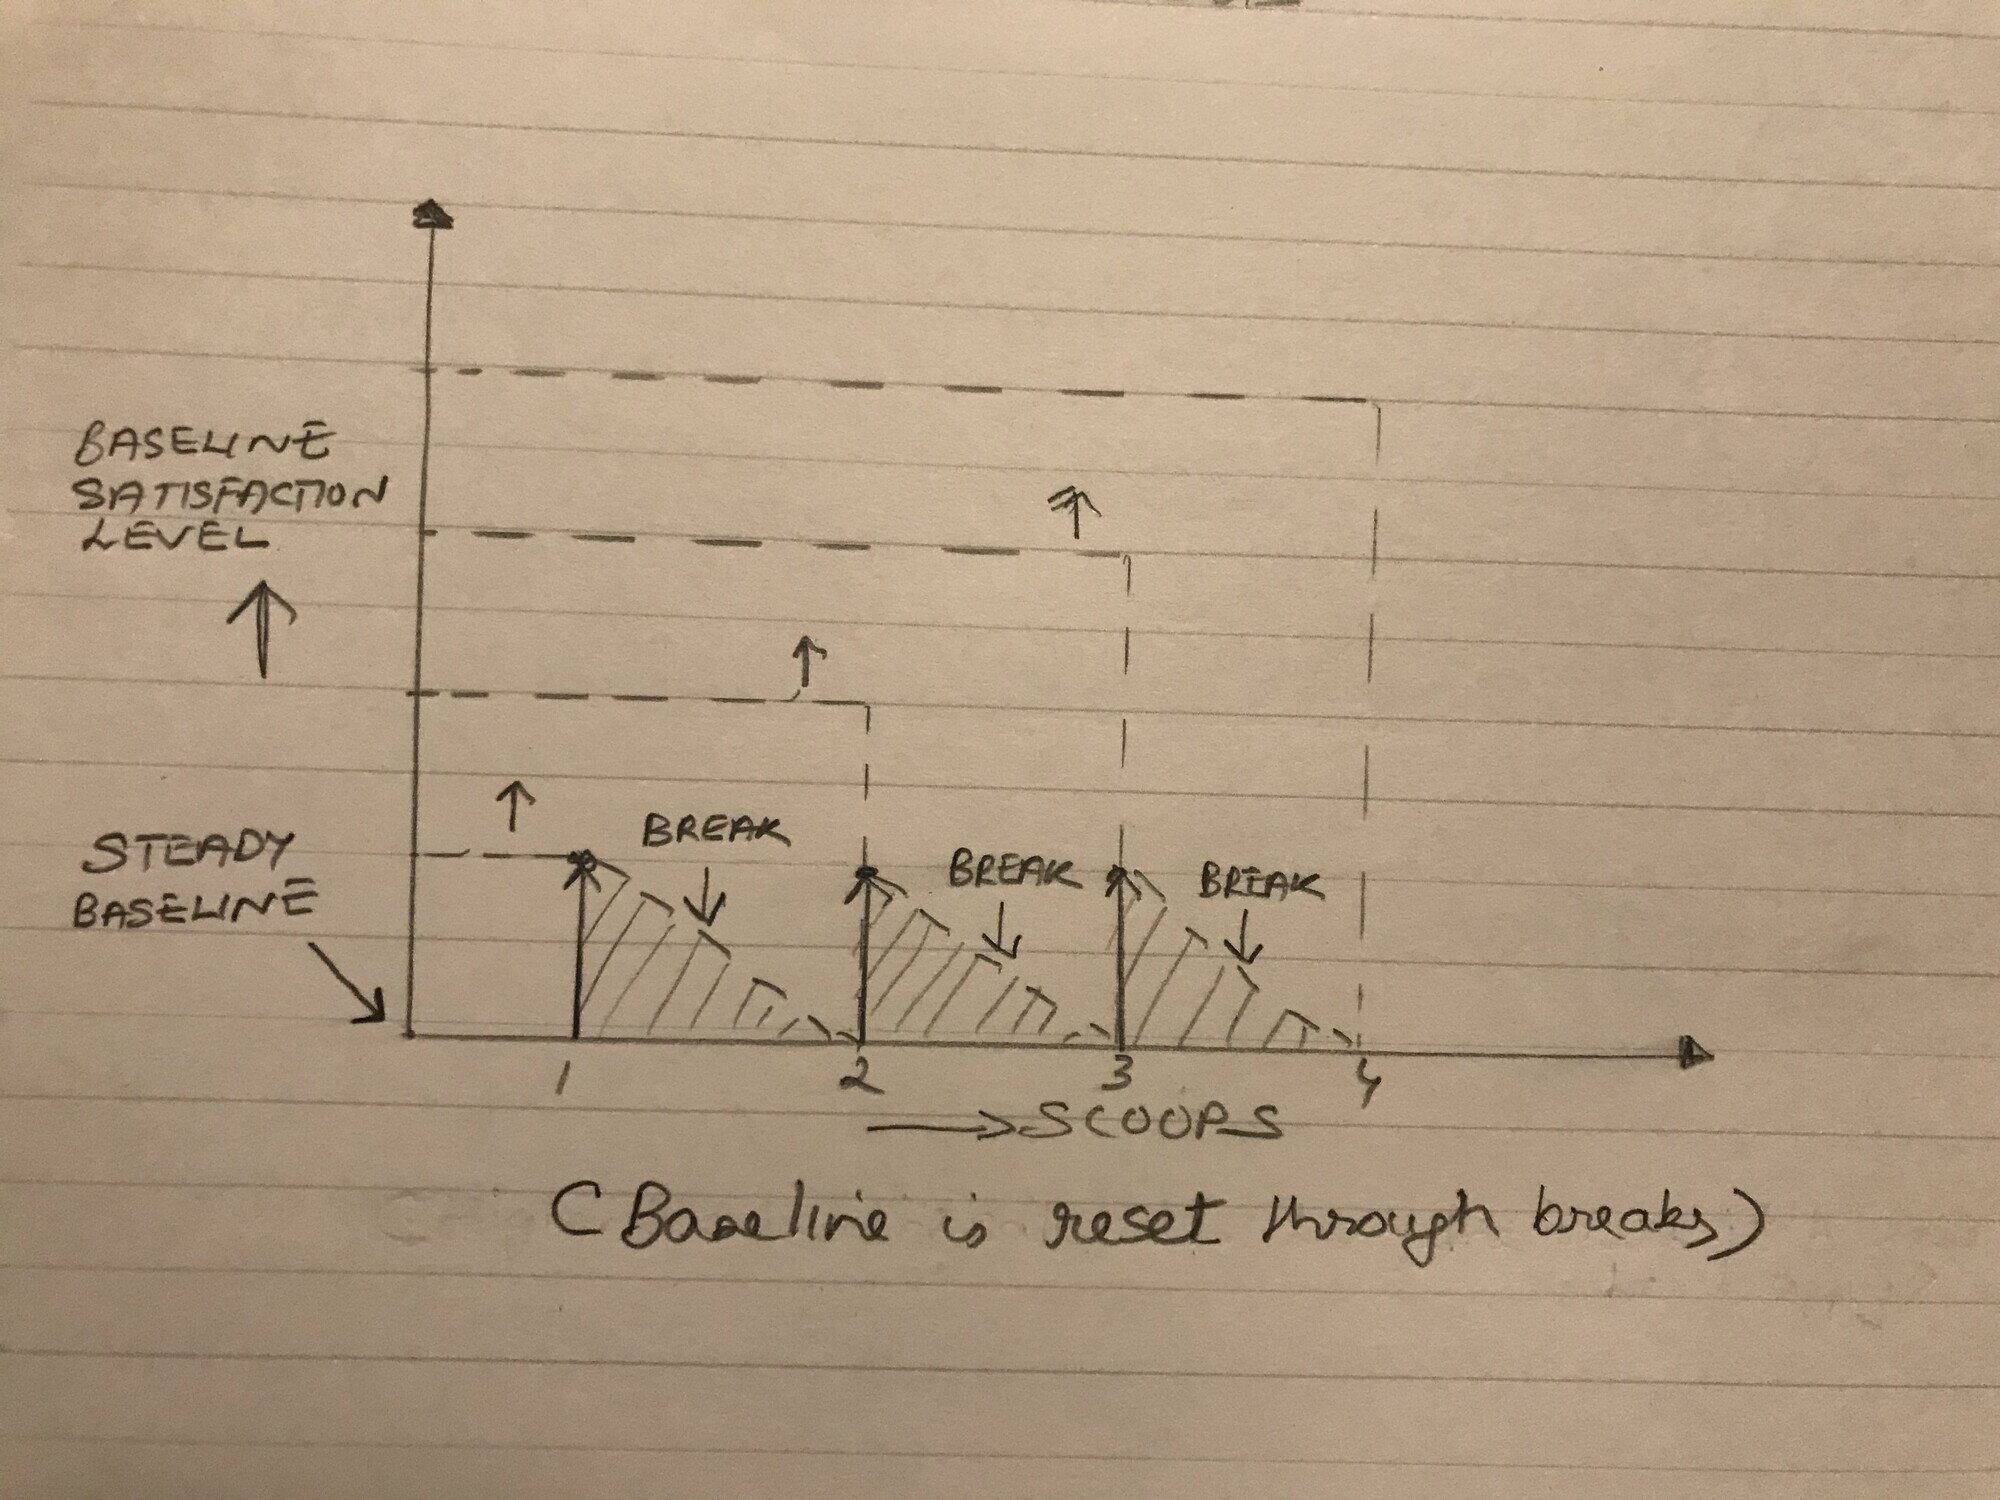 BASELINE
SATISFACTION
LEVEL
STEADY
BASELINE
BREAK
BREAK
BREAK
1 2 3 4
SCOOPS
(Baseline is reset through breaks)